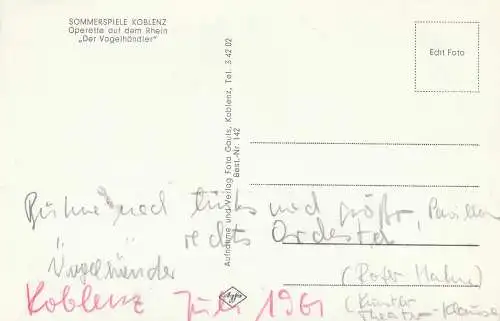 SOMMERSPIELE KOBLENZ
Operette auf dem Rhein
„Der Vogelhändler"
Echt Foto
Aufnahme und Verlag Foto Gauls, Koblenz, Tel. 3 42 02
Best.-Nr. 142
Bühne nach links noch größer, Pavillon
rechts
Vogelhändler
Koblenz Juli 1961
(Roter Hahn)
(Künstler
Theater-Klause
Agfa